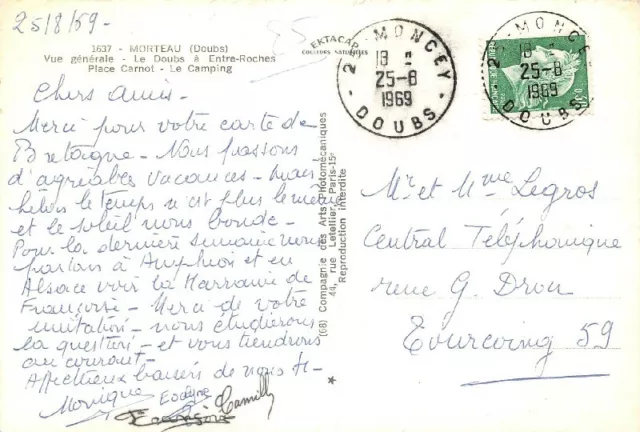 25/8/59
1637 - MORTEAU (Doubs)
Vue générale - Le Doubs à Entre-Roches
Place Carnot - Le Camping
EKTACAP
COULEURS NATURELLES
MONCEY
18
25-8
1969
DOUBS
MONCEY
25-8
1969
DOUBS
0,30
Chers amis -
Merci pour votre carte de
Bretagne - Nous passons
d'agréables vacances - mais
hélas le temps n'est plus le même
et le soleil nous boude -
Pour la dernière semaine nous
partons à et en
Alsace voir la Marraine de
Françoise - Merci de votre
invitation - nous étudierons
la question - et vous tiendrons
au courant -
Affectueux baisers de nous
Monique
Françoise Camille
(68) Compagnie des Arts Photomécaniques
44, rue Letellier - Paris-15e
Reproduction interdite
Mr et Mme Legros
Central Téléphonique
rue G. Dron
Tourcoing 59